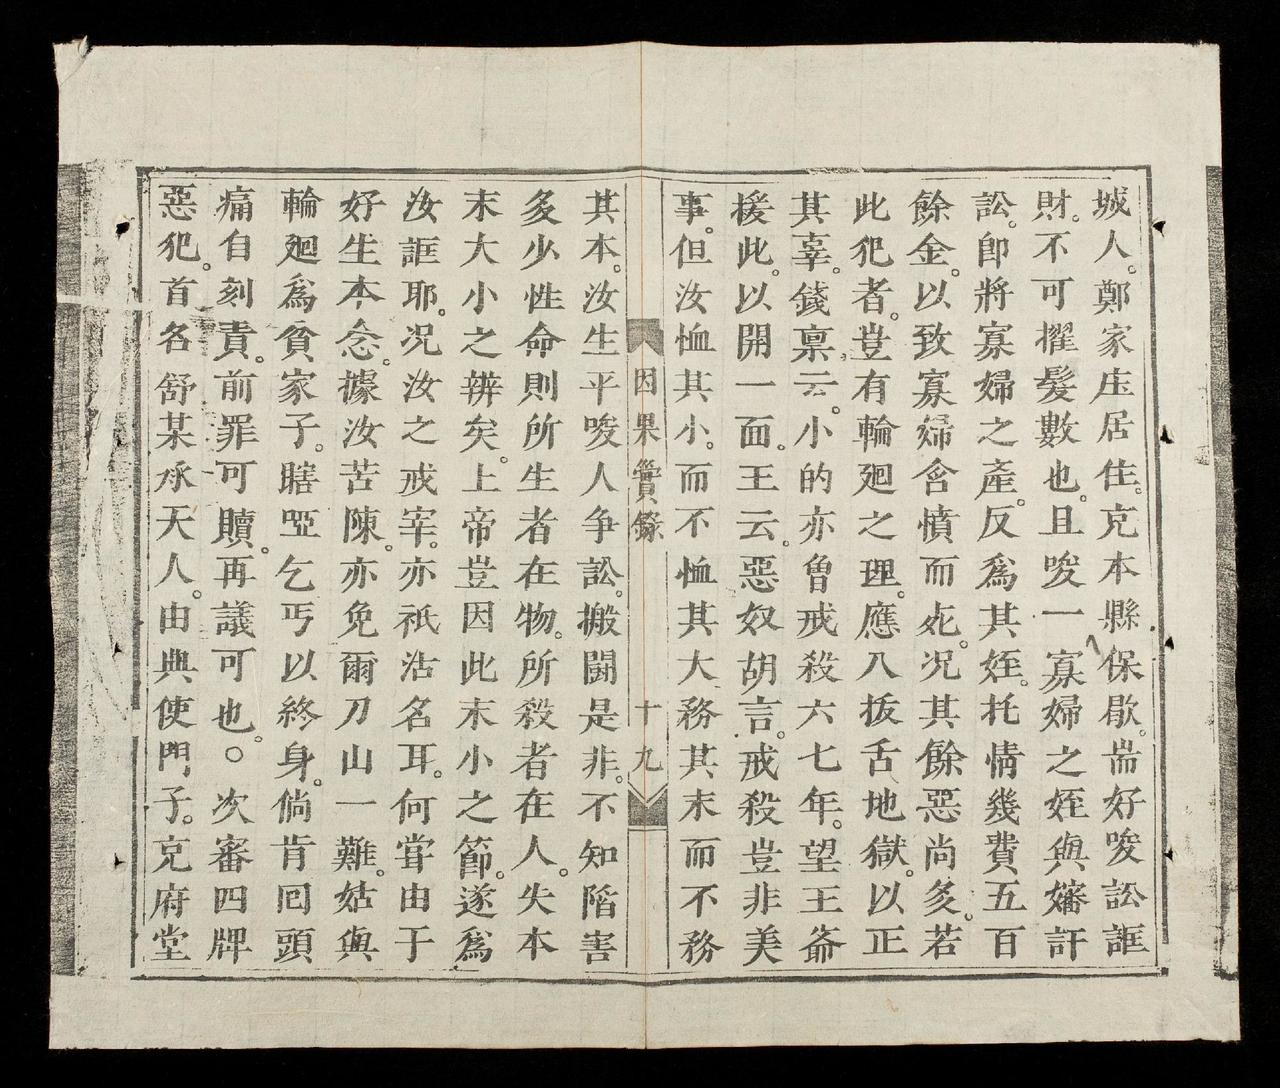 城人。鄭家庄居住。克本縣保歇。耑好唆訟誆
財。不可擢髮數也。且唆一寡婦之姪與嬸訐
訟。即將寡婦之產。反爲其姪。托情幾費五百
餘金。以致寡婦含憤而死。况其餘惡尚多。若
此犯者。豈有輪廻之理。應入拔舌地獄。以正
其辜。錢禀云。小的亦曾戒殺六七年。望王爺
援此。以開一面。王云。惡奴胡言。戒殺豈非美
事。但汝恤其小。而不恤其大務其末而不務
因果實錄 十九
其本。汝生平唆人争訟。搬鬪是非。不知陷害
多少性命則所生者在物。所殺者在人。失本
末大小之辨矣。上帝豈因此末小之節。遂爲
汝誆耶。况汝之戒宰。亦祇沽名耳。何甞由于
好生本念。據汝苦陳。亦免爾刀山一難。姑與
輪廻爲貧家子。瞎啞乞丐以終身。倘肯囘頭
痛自刻責。前罪可贖。再議可也。○次審四牌
惡犯。首名舒某承天人。由典使門子。克府堂